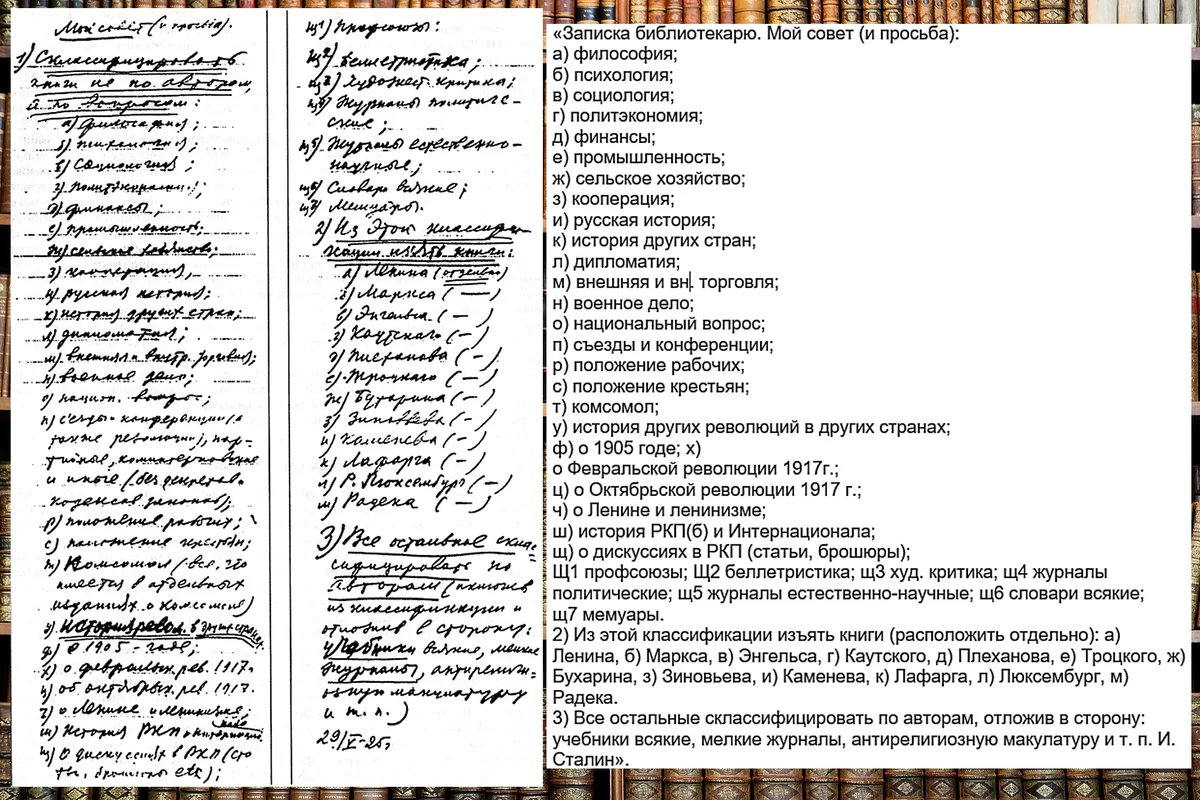 Мой совет (и просьба):
1) Склассифицировать
книги не по авторам,
а по вопросам:
а) философия;
б) психология;
в) социология;
г) политэкономия;
д) финансы;
е) промышленность;
ж) сельское хозяйство;
з) кооперация;
и) русская история;
к) история других стран;
л) дипломатия;
м) внешняя и внутр. торговля;
н) военное дело;
о) национ. вопрос;
п) съезды и конференции (а
также резолюции), пар-
тийные, коминтерновские
и иные (без декретов и
кодексов законов);
р) положение рабочих;
с) положение крестьян;
т) Комсомол (все, что
имеется в отдельных
изданиях о комсомоле)
у) История револ. в других странах;
ф) о 1905 – годе;
х) о февральск. рев. 1917.
ц) об октябрьск. рев. 1917.
ч) о Ленине и ленинизме;
ш) История РКП и Интернацион.
щ) О дискуссиях в РКП (ста
тьи, брошюры);
щ1) Профсоюзы:
щ2) Беллетристика;
щ3) Художест. критика;
щ4) Журналы политиче-
ские;
щ5) Журналы естественно-
научные;
щ6) Словари всякие;
щ7) Мемуары.
2) Из этой классифи-
кации изъять книги:
а) Ленина (отдельно)
б) Маркса ( — )
в) Энгельса ( — )
г) Каутского ( — )
д) Плеханова ( — )
е) Троцкого ( — )
ж) Бухарина ( — )
з) Зиновьева ( — )
и) Каменева ( — )
к) Лафарга ( — )
л) Р. Люксембург ( — )
м) Радека ( — )
3) Все остальные склас-
сифицировать по
авторам (исключив
из классификации и
отложив в сторону:
учебники всякие, мелкие
журналы, антирелигиоз-
ную макулатуру
и т. п.)
29/V-25.
«Записка библиотекарю. Мой совет (и просьба):
а) философия;
б) психология;
в) социология;
г) политэкономия;
д) финансы;
е) промышленность;
ж) сельское хозяйство;
з) кооперация;
и) русская история;
к) история других стран;
л) дипломатия;
м) внешняя и вн. торговля;
н) военное дело;
о) национальный вопрос;
п) съезды и конференции;
р) положение рабочих;
с) положение крестьян;
т) комсомол;
у) история других революций в других странах;
ф) о 1905 годе; х)
о Февральской революции 1917г.;
ц) о Октябрьской революции 1917 г.;
ч) о Ленине и ленинизме;
ш) история РКП(б) и Интернационала;
щ) о дискуссиях в РКП (статьи, брошюры);
Щ1 профсоюзы; Щ2 беллетристика; щ3 худ. критика; щ4 журналы
политические; щ5 журналы естественно-научные; щ6 словари всякие;
щ7 мемуары.
2) Из этой классификации изъять книги (расположить отдельно): а)
Ленина, б) Маркса, в) Энгельса, г) Каутского, д) Плеханова, е) Троцкого, ж)
Бухарина, з) Зиновьева, и) Каменева, к) Лафарга, л) Люксембург, м)
Радека.
3) Все остальные склассифицировать по авторам, отложив в сторону:
учебники всякие, мелкие журналы, антирелигиозную макулатуру и т. п. И.
Сталин».